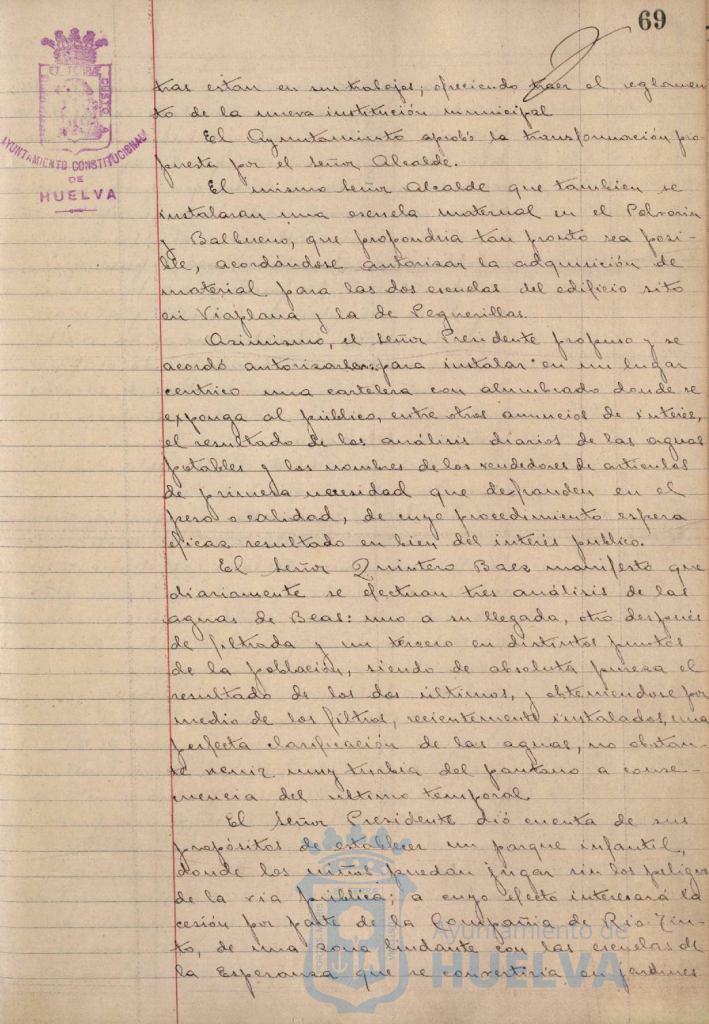 69
AYUNTAMIENTO CONSTITUCIONAL
DE
HUELVA
tras estan en sus trabajos; ofreciendo traer el reglamen
to de la nueva institución municipal
El Ayuntamiento aprobó la transformación pro
puesta por el Señor Alcalde.
El mismo Señor Alcalde que tambien se
instalaran una escuela maternal en el Polvorin
y Balbueno, que propondria tan pronto sea posi-
ble, acordándose autorizar la adquisición de
material para las dos escuelas del edificio sito
en Viaplana y la de Peguerillas.
Asimismo, el Señor Presidente propuso y se
acordó para instalar en un lugar
centrico una cartelera con alumbrado donde se
exponga al público, entre otros anuncios de interés,
el resultado de los análisis diarios de las aguas
potables y los nombres de los vendedores de articulos
de primera necesidad que defrauden en el
peso o calidad, de cuyo procedimiento espera
eficaz resultado en bien del interés publico.
El Señor Quintero Baez manifestó que
diariamente se efectuan tres análisis de las
aguas de Beas: uno a su llegada, otro después
de filtrada y un tercero en distintos puntos
de la población, siendo de absoluta pureza el
resultado de los dos últimos, y obteniendose por
medio de los filtros, recientemente instalados, una
perfecta clarificación de las aguas, no obstan-
te venir muy turbia del pantano a conse-
cuencia del ultimo temporal.
El Señor Presidente dió cuenta de sus
propósitos de establecer un parque infantil,
donde los niños puedan jugar sin los peligros
de la via pública; a cuyo efecto interesará la
cesión por parte de la Compañia de Rio-Tin-
to, de una zona lindante con las escuelas de
la Esperanza que se convertiria en jardines
Ayuntamiento de
HUELVA